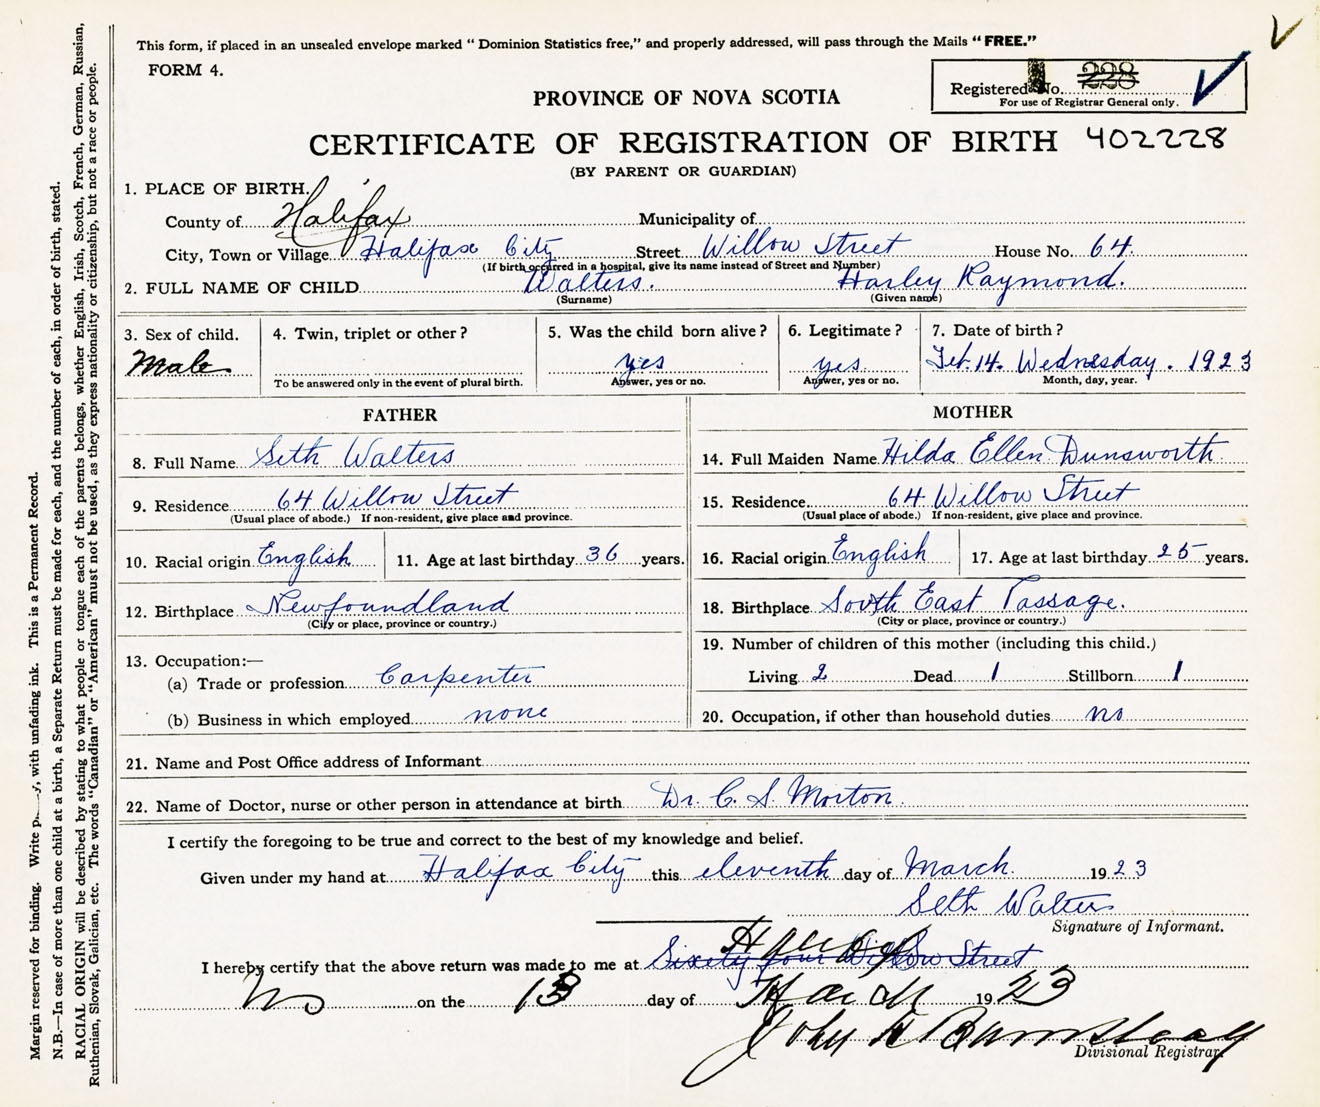 This form, if placed in an unsealed envelope marked "Dominion Statistics free," and properly addressed, will pass through the Mails "FREE."
FORM 4.
Registered No. 228
For use of Registrar General only.
PROVINCE OF NOVA SCOTIA
CERTIFICATE OF REGISTRATION OF BIRTH 402228
(BY PARENT OR GUARDIAN)
1. PLACE OF BIRTH.
County of Halifax Municipality of
City, Town or Village Halifax City Street Willow Street House No. 64.
(If birth occurred in a hospital, give its name instead of Street and Number)
2. FULL NAME OF CHILD Walters. Harley Raymond.
(Surname) (Given name)
3. Sex of child. 4. Twin, triplet or other? 5. Was the child born alive? 6. Legitimate? 7. Date of birth?
Male yes yes Feb. 14. Wednesday. 1923
To be answered only in the event of plural birth. Answer, yes or no. Answer, yes or no. Month, day, year.
FATHER MOTHER
8. Full Name Seth Walters 14. Full Maiden Name Hilda Ellen Dunsworth
9. Residence 64 Willow Street 15. Residence 64 Willow Street
(Usual place of abode.) If non-resident, give place and province. (Usual place of abode.) If non-resident, give place and province.
10. Racial origin English 11. Age at last birthday 36 years. 16. Racial origin English 17. Age at last birthday 25 years.
12. Birthplace Newfoundland 18. Birthplace South East Passage.
(City or place, province or country.) (City or place, province or country.)
13. Occupation:— 19. Number of children of this mother (including this child.)
(a) Trade or profession Carpenter Living 2 Dead 1 Stillborn 1
(b) Business in which employed none 20. Occupation, if other than household duties no
21. Name and Post Office address of Informant
22. Name of Doctor, nurse or other person in attendance at birth Dr. C. S. Morton.
I certify the foregoing to be true and correct to the best of my knowledge and belief.
Given under my hand at Halifax City this eleventh day of March. 1923
Seth Walters
Signature of Informant.
I hereby certify that the above return was made to me at Sixety four Willow Street
on the 13 day of March 1923
John
Divisional Registrar.
Margin reserved for binding. Write with unfading ink. This is a Permanent Record.
N.B.—In case of more than one child at a birth, a Separate Return must be made for each, and the number of each, in order of birth, stated.
RACIAL ORIGIN will be described by stating to what people or tongue each of the parents belongs, whether English, Irish, Scotch, French, German, Russian,
Ruthenian, Slovak, Galician, etc. The words "Canadian" or "American" must not be used, as they express nationality or citizenship, but not a race or people.